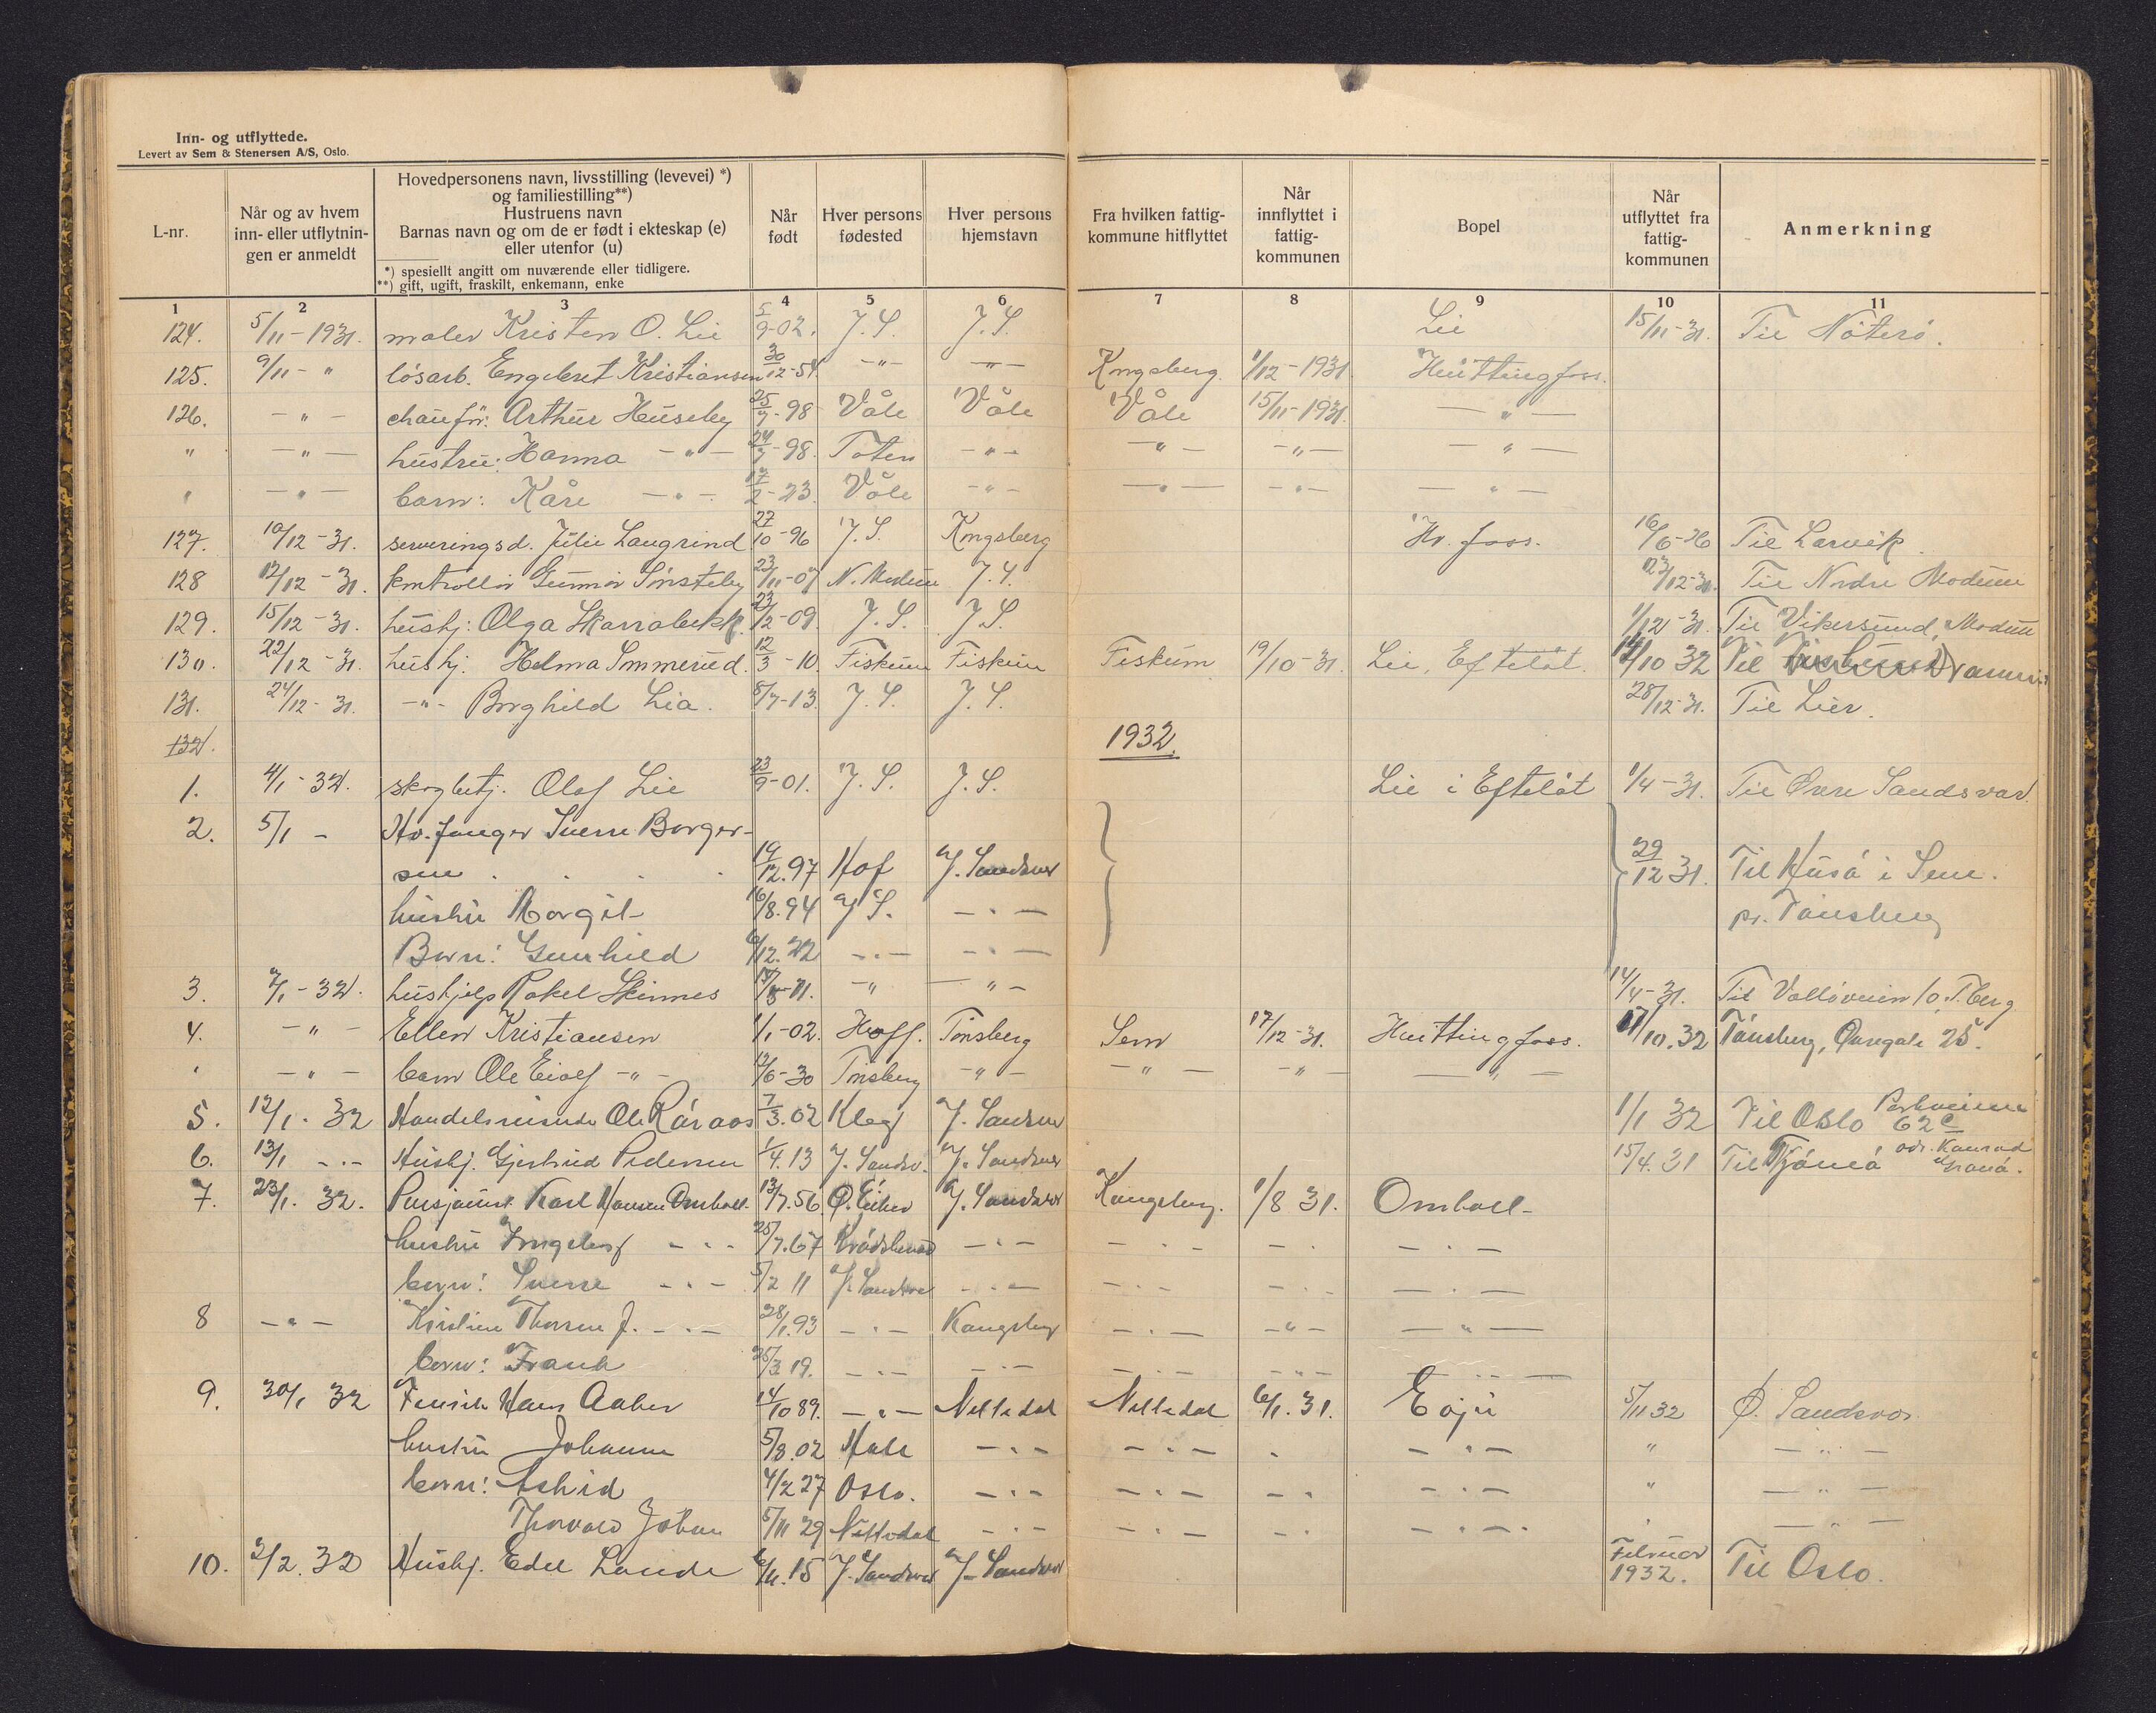 Inn- og utflyttede.
Levert av Sem & Stenersen A/S, Oslo.
L-nr.
Når og av hvem inn- eller utflytnin-gen er anmeldt
Hovedpersonens navn, livsstilling (levevei) *)
og familiestilling**)
Hustruens navn
Barnas navn og om de er født i ekteskap (e)
eller utenfor (u)
*) spesiellt angitt om nuværende eller tidligere.
**) gift, ugift, fraskilt, enkemann, enke
Når født
Hver persons fødested
Hver persons hjemstavn
Fra hvilken fattig-kommune hitflyttet
Når innflyttet i fattig-kommunen
Bopel
Når utflyttet fra fattig-kommunen
Anmerkning
1 2 3 4 5 6 7 8 9 10 11
124. 5/11-1931. maler Kristen O. Lie 5/9-02. Y.S. Y.S. Lie 15/11-31. Til Nøterö.
125. 9/11 - " lösarb. Engebret Kristiansen 30/12-54 -"- -"- Kongsberg. 1/12-1931. Hvittingfoss.
126. -"- chauför: Arthur Huseby 25/7-98 Våle Våle Våle 15/11-1931. -"-
" -"- hustru: Hanna -"- 24/7-98. Toten -"- -"- -"- -"-
" -"- barn: Kåre -"- 17/2-23. Våle -"- -"- -"- -"-
127. 10/12-31. serveringsd. Julie Laugrind 27/10-96 Y.S. Kongsberg Hv. foss. 16/6-26 Til Larvik.
128 12/12-31. kontrollör Gunnor Sönsteby 23/11-07 N. Modum Y.S. 23/12-31. Til Nordre Modum
129. 15/12-31. hushj: Olga Skarrabekk. 23/2-09. Y.S. Y.S. 1/12-31. Til Vikersund, Modum
130. 22/12-31. hushj. Helma Smmerud. 12/3-10. Fiskum Fiskum Fiskum 19/10-31. Lie, Eftelöt. 14/10 32 Til
131. 24/12-31. -"- Borghild Lia. 8/7-13. Y.S. Y.S. 28/12-31. Til Lier.
132.
1932.
1. 4/1-32. skogbetj. Olaf Lie 23/9-01. Y.S. Y.S. Lie i Eftelöt 1/4-31. Til Övre Sandsvær.
2. 5/1 - Hv. fanger Sverre Borger-
sen 19/12.97 Hof Y. Sandsver 29/12 31. Til Husö i Sem.
hustru Margit 16/8.94 Y S. -"- pr. Tønsberg
Barn: Gunhild 6/12.22 -"- -"-
3. 7/1-32. hushjelp Rakel Skinnes -"- -"- 14/4-31. Til Vallöveien 10, T.berg
4. -"- Ellen Kristiansen 1/1-02. Hoff. Tönsberg Sem 17/12-31. Hvittingfoss. 17/10.32 Tønsberg, Övregate 25.
" -"- barn Ole Eiolf -"- 12/6-30 Tönsberg -"- -"- -"- -"-
5. 12/1.32 Handelsreisende Ole Råraas 7/3.02 Klegj Y. Sandsver 1/1 32 Til Oslo Parkveien 62 c
6. 13/1 -"- Hushj. Gjertrud Pedersen 1/4.13 Y. Sandsv. Y. Sandsver 15/4.31 Til Tjömö adr. Konrad
7. 23/1. 32. Pensjonist Karl Hansen Omholt. 13/7.56 Ø. Eiker Y. Sandsver Kongsberg. 1/8 31. Omholt
hustru Ingeborg -"- 25/7.67 Krödsherad -"- -"- -"- -"-
barn: Sverre -"- 5/2 11 Y. Sandsver -"- -"- -"- -"-
8 -"- Kristine Thorsen f. -"- 28/1.93 -"- Kongsberg -"- -"- -"-
barn: Frank 25/3 19. -"- -"- -"- -"- -"-
9. 30/1 32 Fenrik Hans Aaker 14/10 89. -"- Nittedal Nittedal 6/1.31. 5/11 32 Ø. Sandsvær
hustru Johanne 5/8.02 Hole -"- -"- " -"- " -"-
barn: Astrid 4/2 27 Oslo. -"- -"- -"- -"- " -"-
Thorvald Johan 5/11 29 Nittedal -"- -"- -"- -"- " -"-
10. 2/2.32 Hushj. Edel Lande 6/11.15 Y. Sandsver Y. Sandsver Februar 1932. Til Oslo.